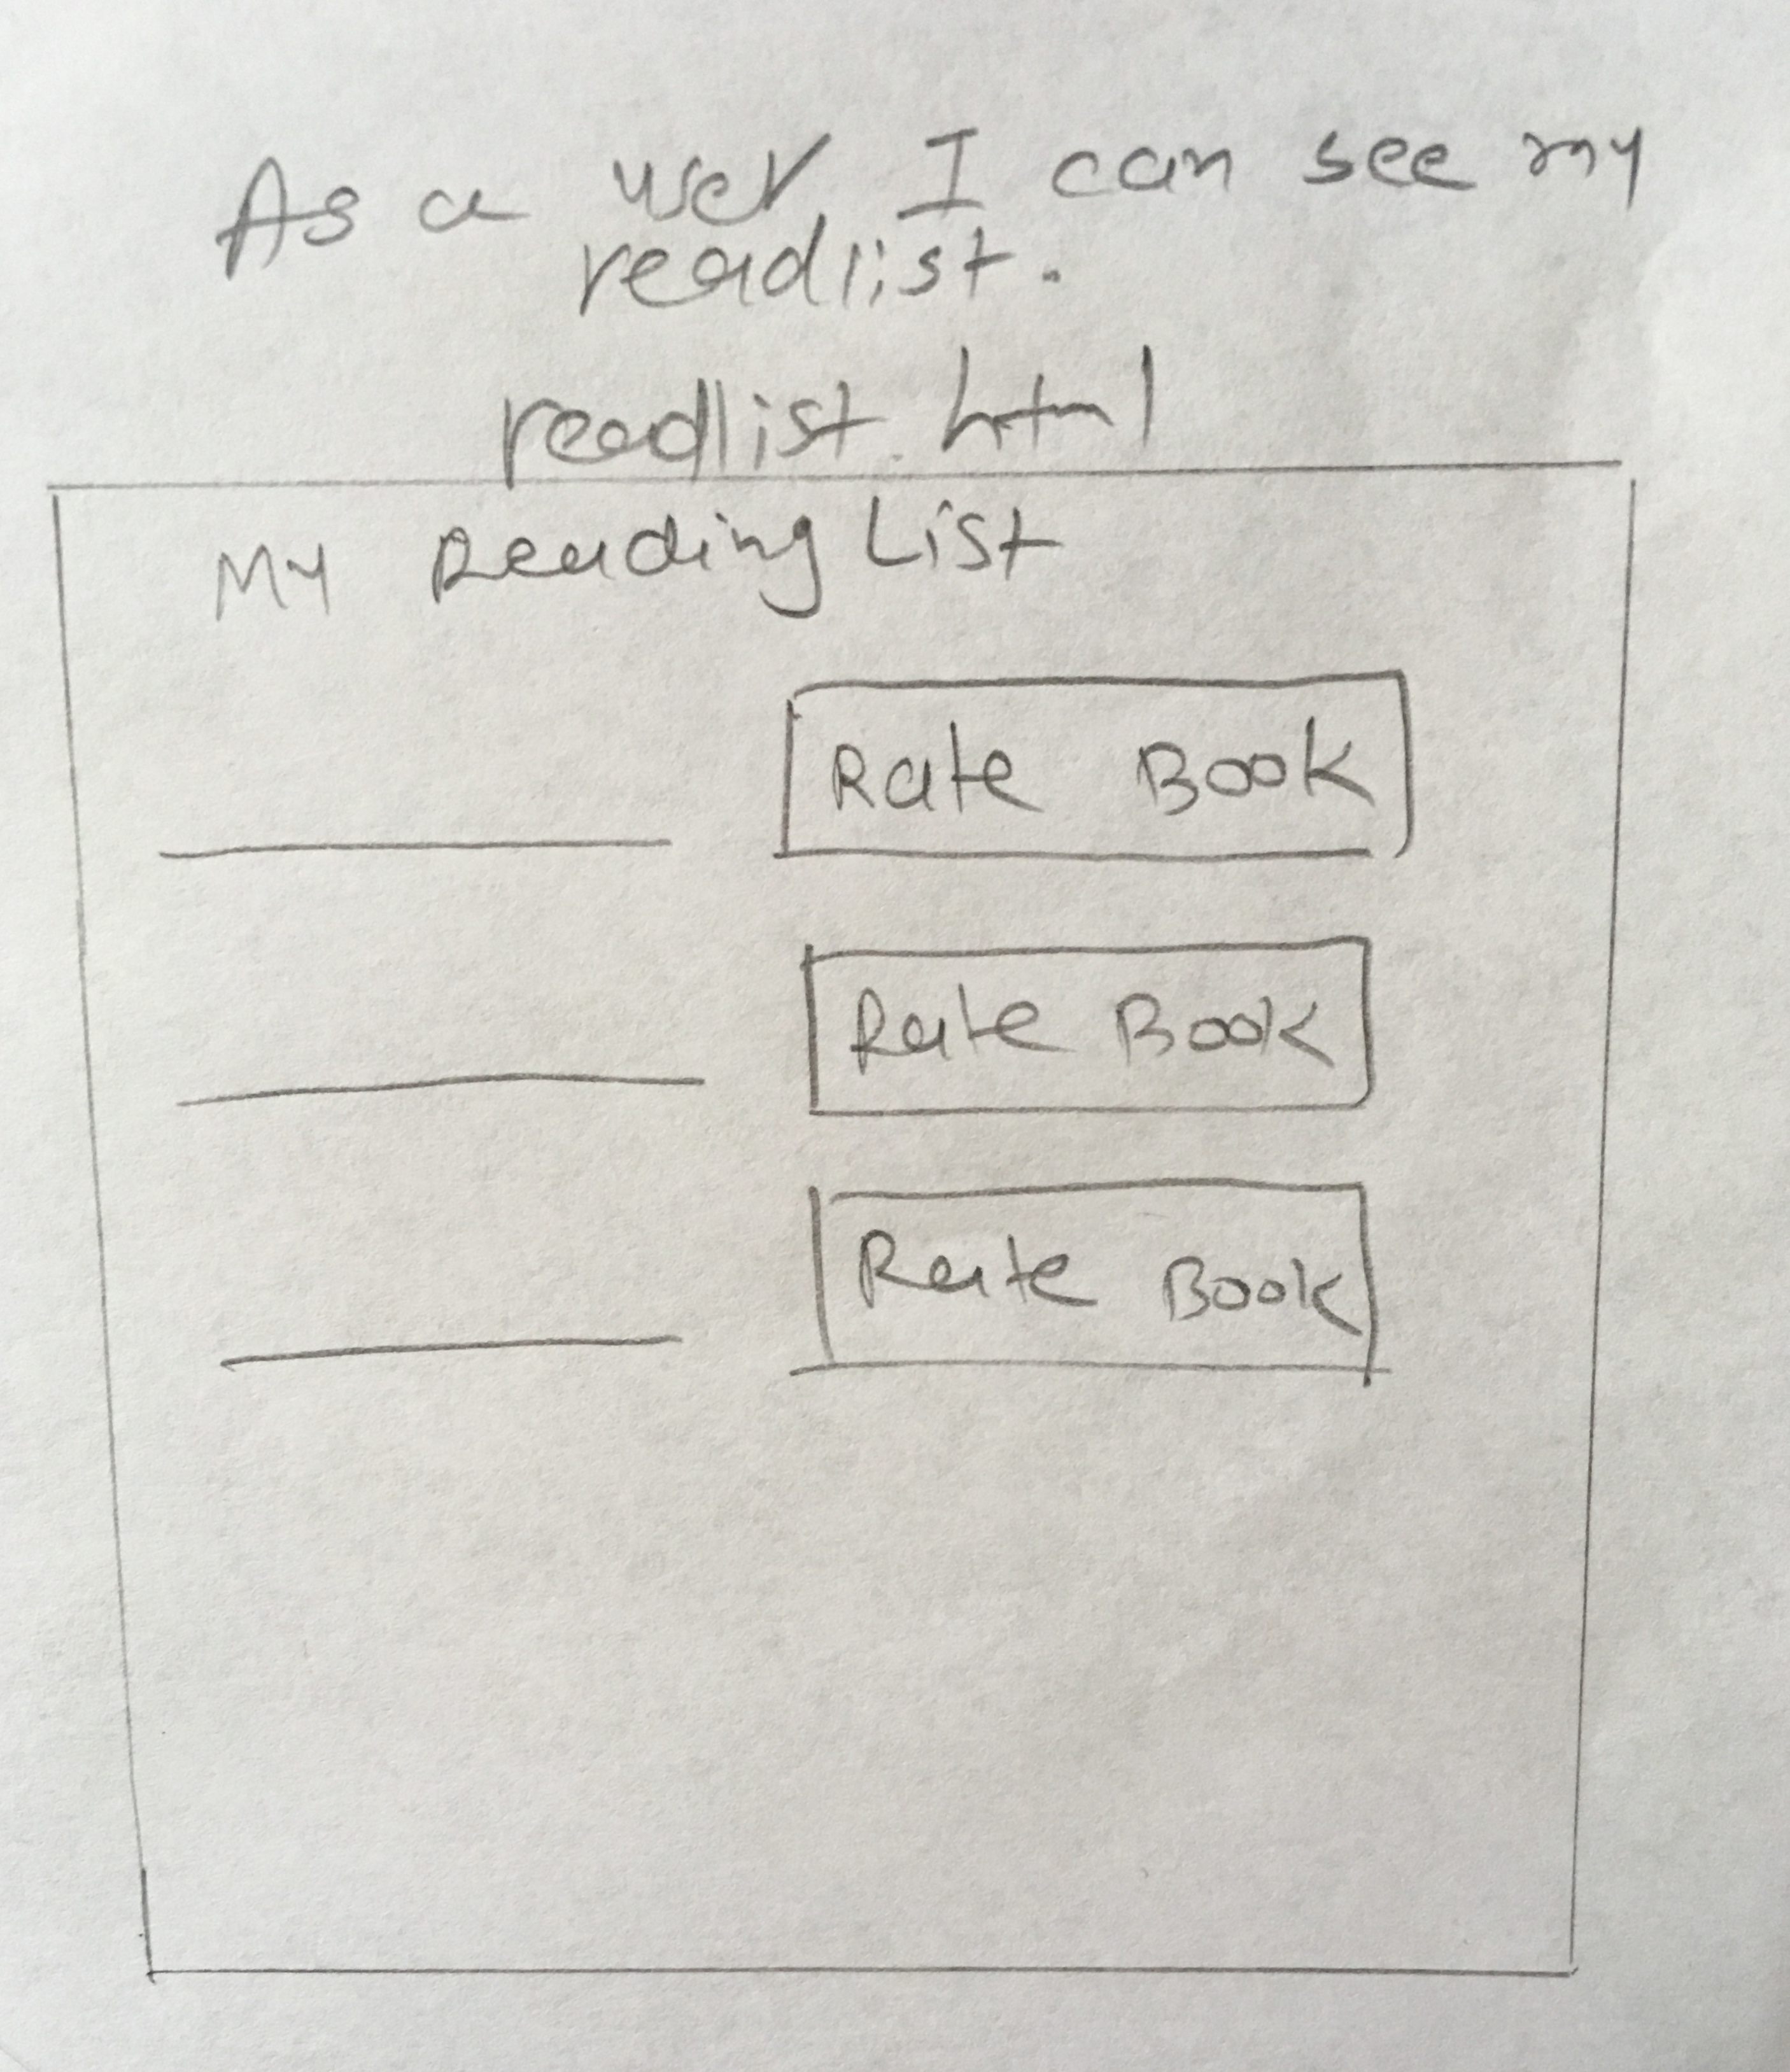 As a user, I can see my
readlist.
readlist.html
My Reading List
Rate Book
Rate Book
Rate Book